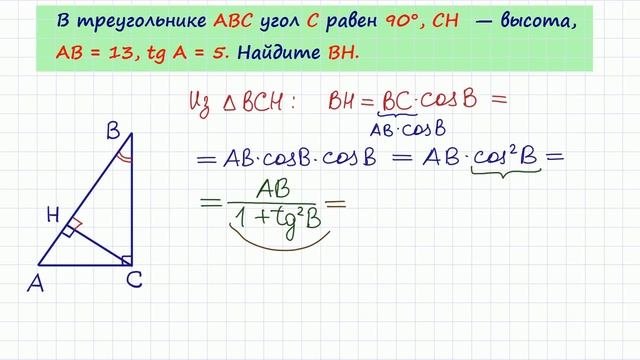 В треугольнике ABC угол C равен 90°, CH — высота,
AB = 13, tg A = 5. Найдите BH.
Из △BCH: BH = BC · cosB =
AB · cosB
= AB · cosB · cosB = AB · cos²B =
= AB / 1 + tg²B =
B
H
A
C